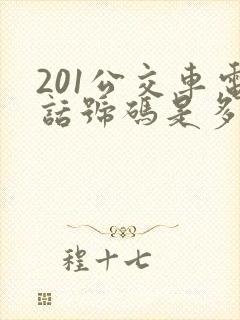 201公交車電
話號碼是多
程十七